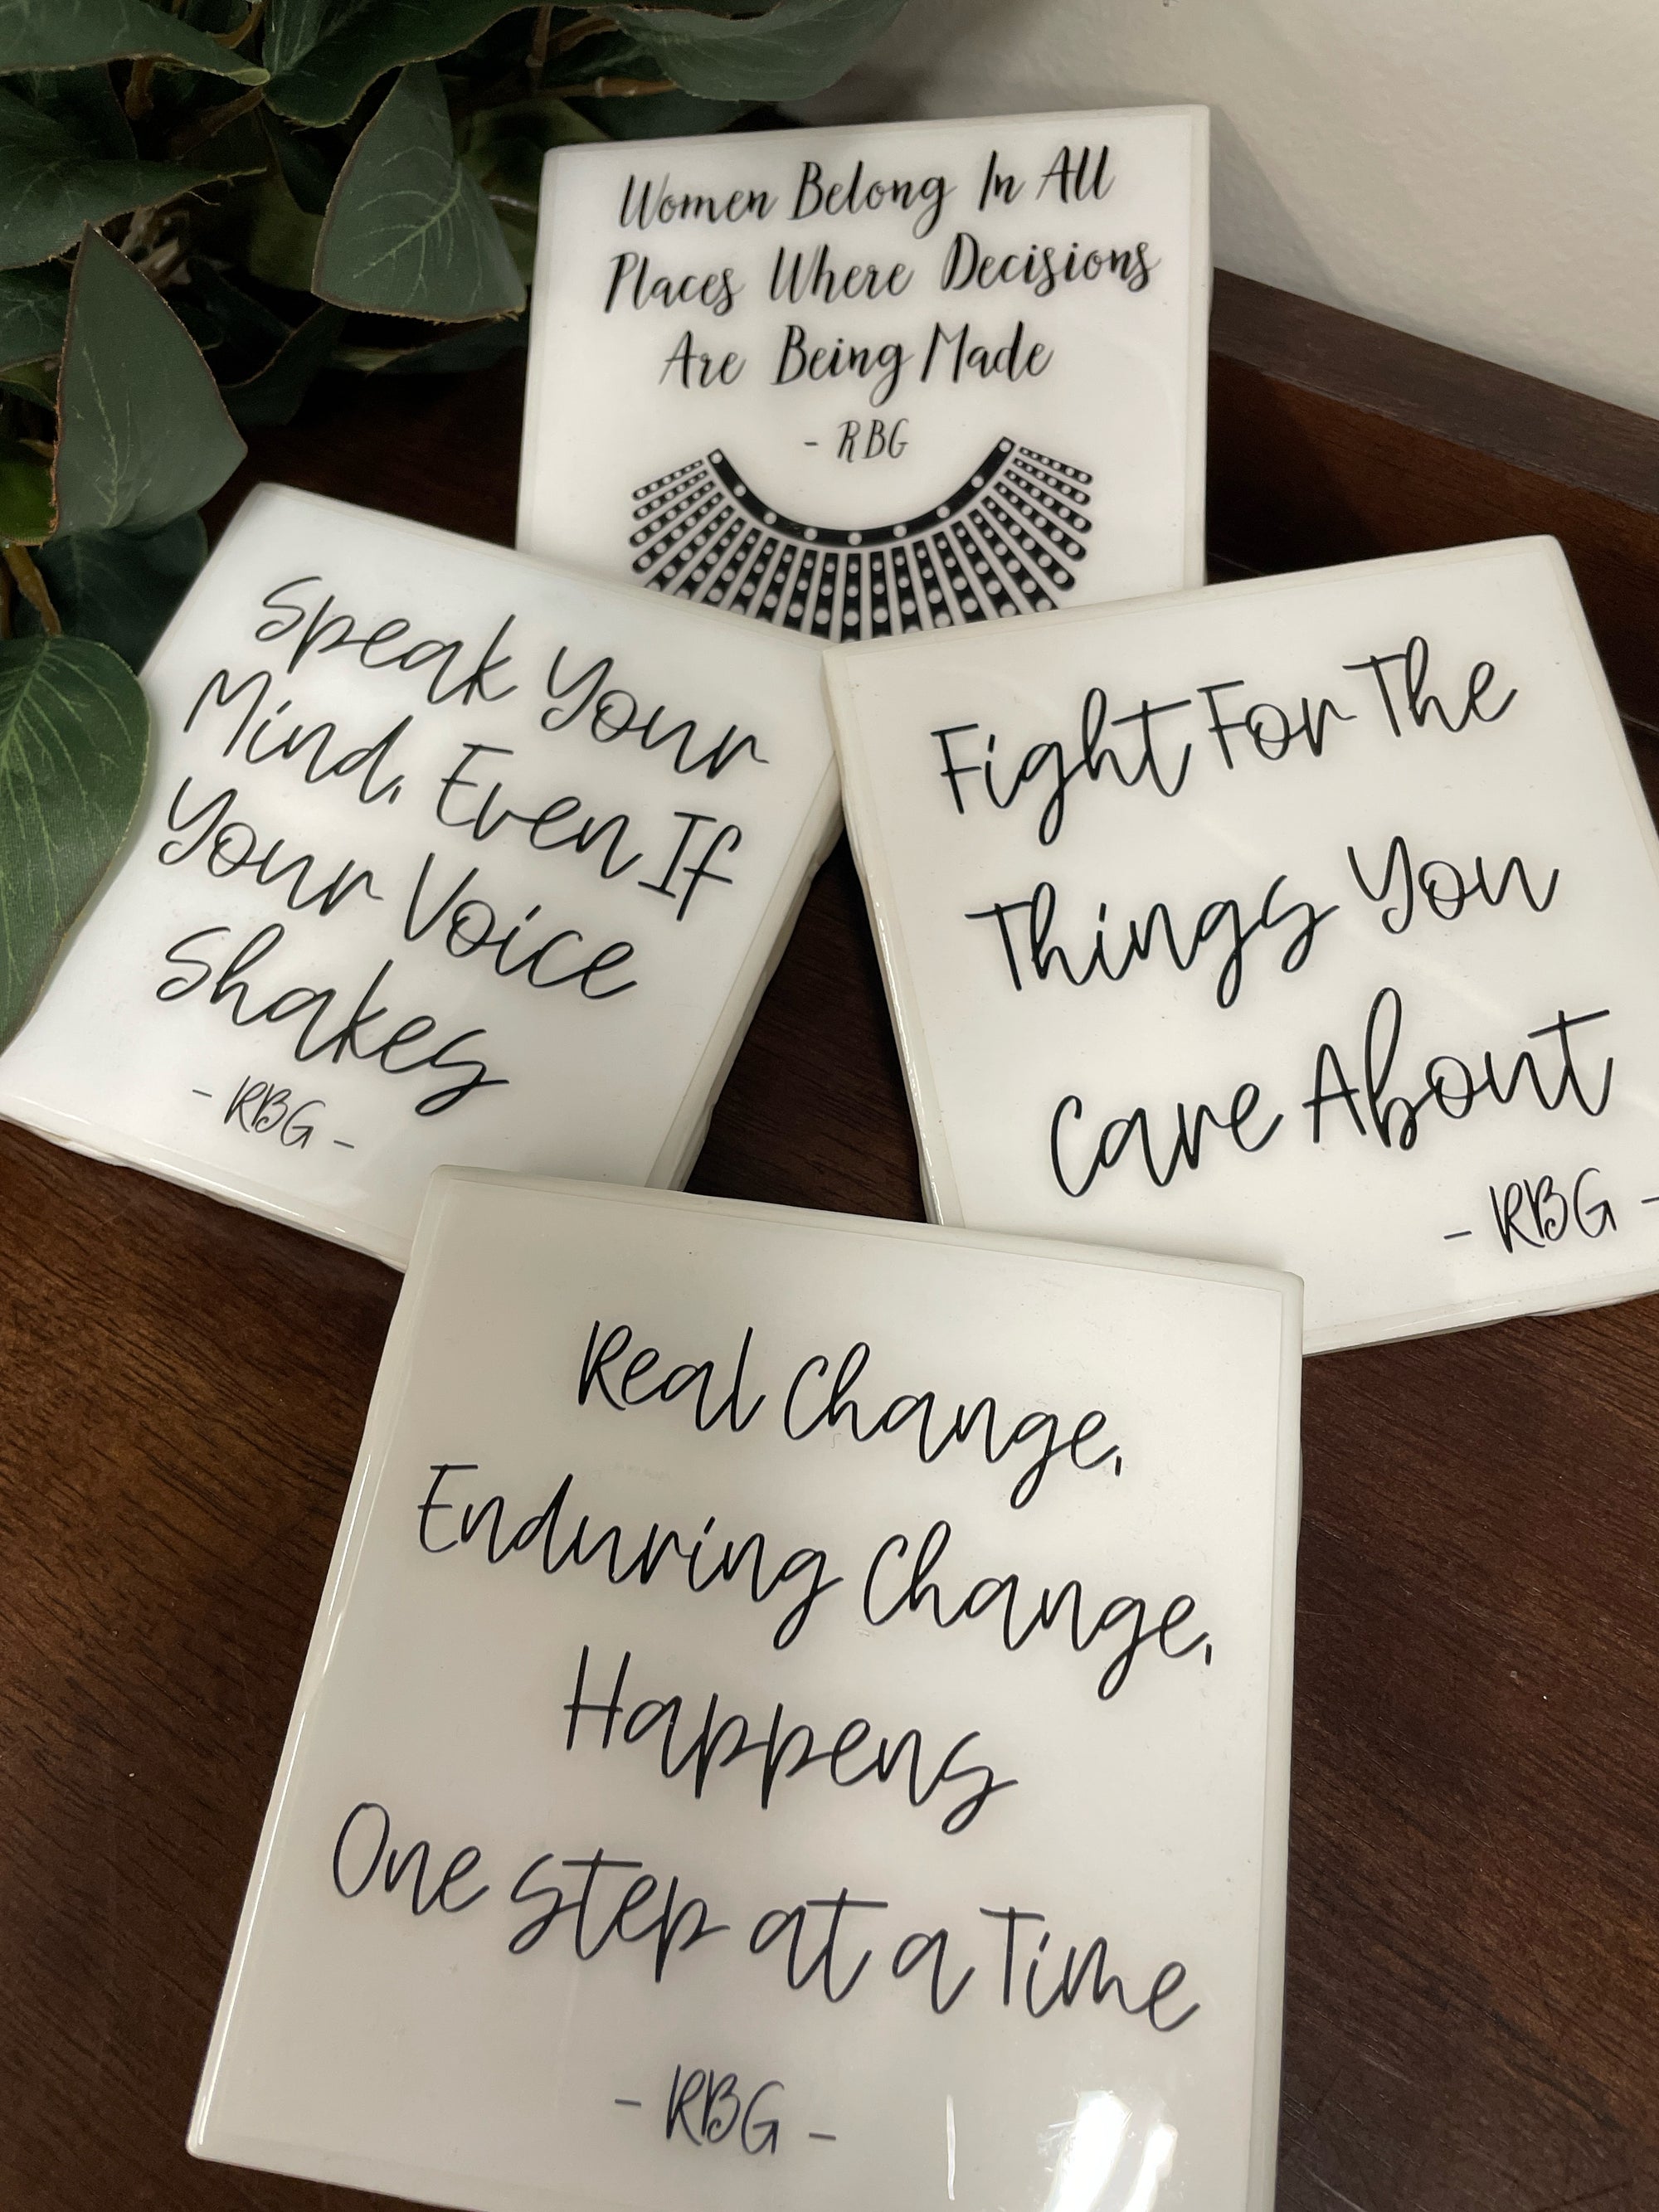 Women Belong In All
Places Where Decisions
Are Being Made
- RBG
Speak Your
Mind, Even If
Your Voice
Shakes
- RBG -
Fight For The
Things You
Care About
- RBG -
Real Change,
Enduring Change,
Happens
One Step at a Time
- RBG -